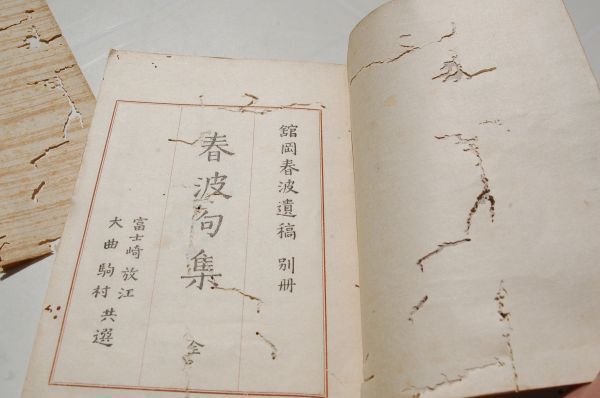 舘岡春波遺稿 別冊
春波句集 全
富士崎放江
大曲駒村共選